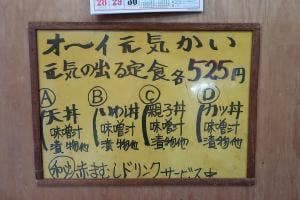 28 29 30
オ〜イ元気かい
元気の出る定食各525円
Ⓐ Ⓑ Ⓒ Ⓓ
天丼 いわし丼 親子丼 カツ丼
味噌汁 味噌汁 味噌汁 味噌汁
漬物他 漬物他 漬物他 漬物他
赤まむしドリンクサービス中